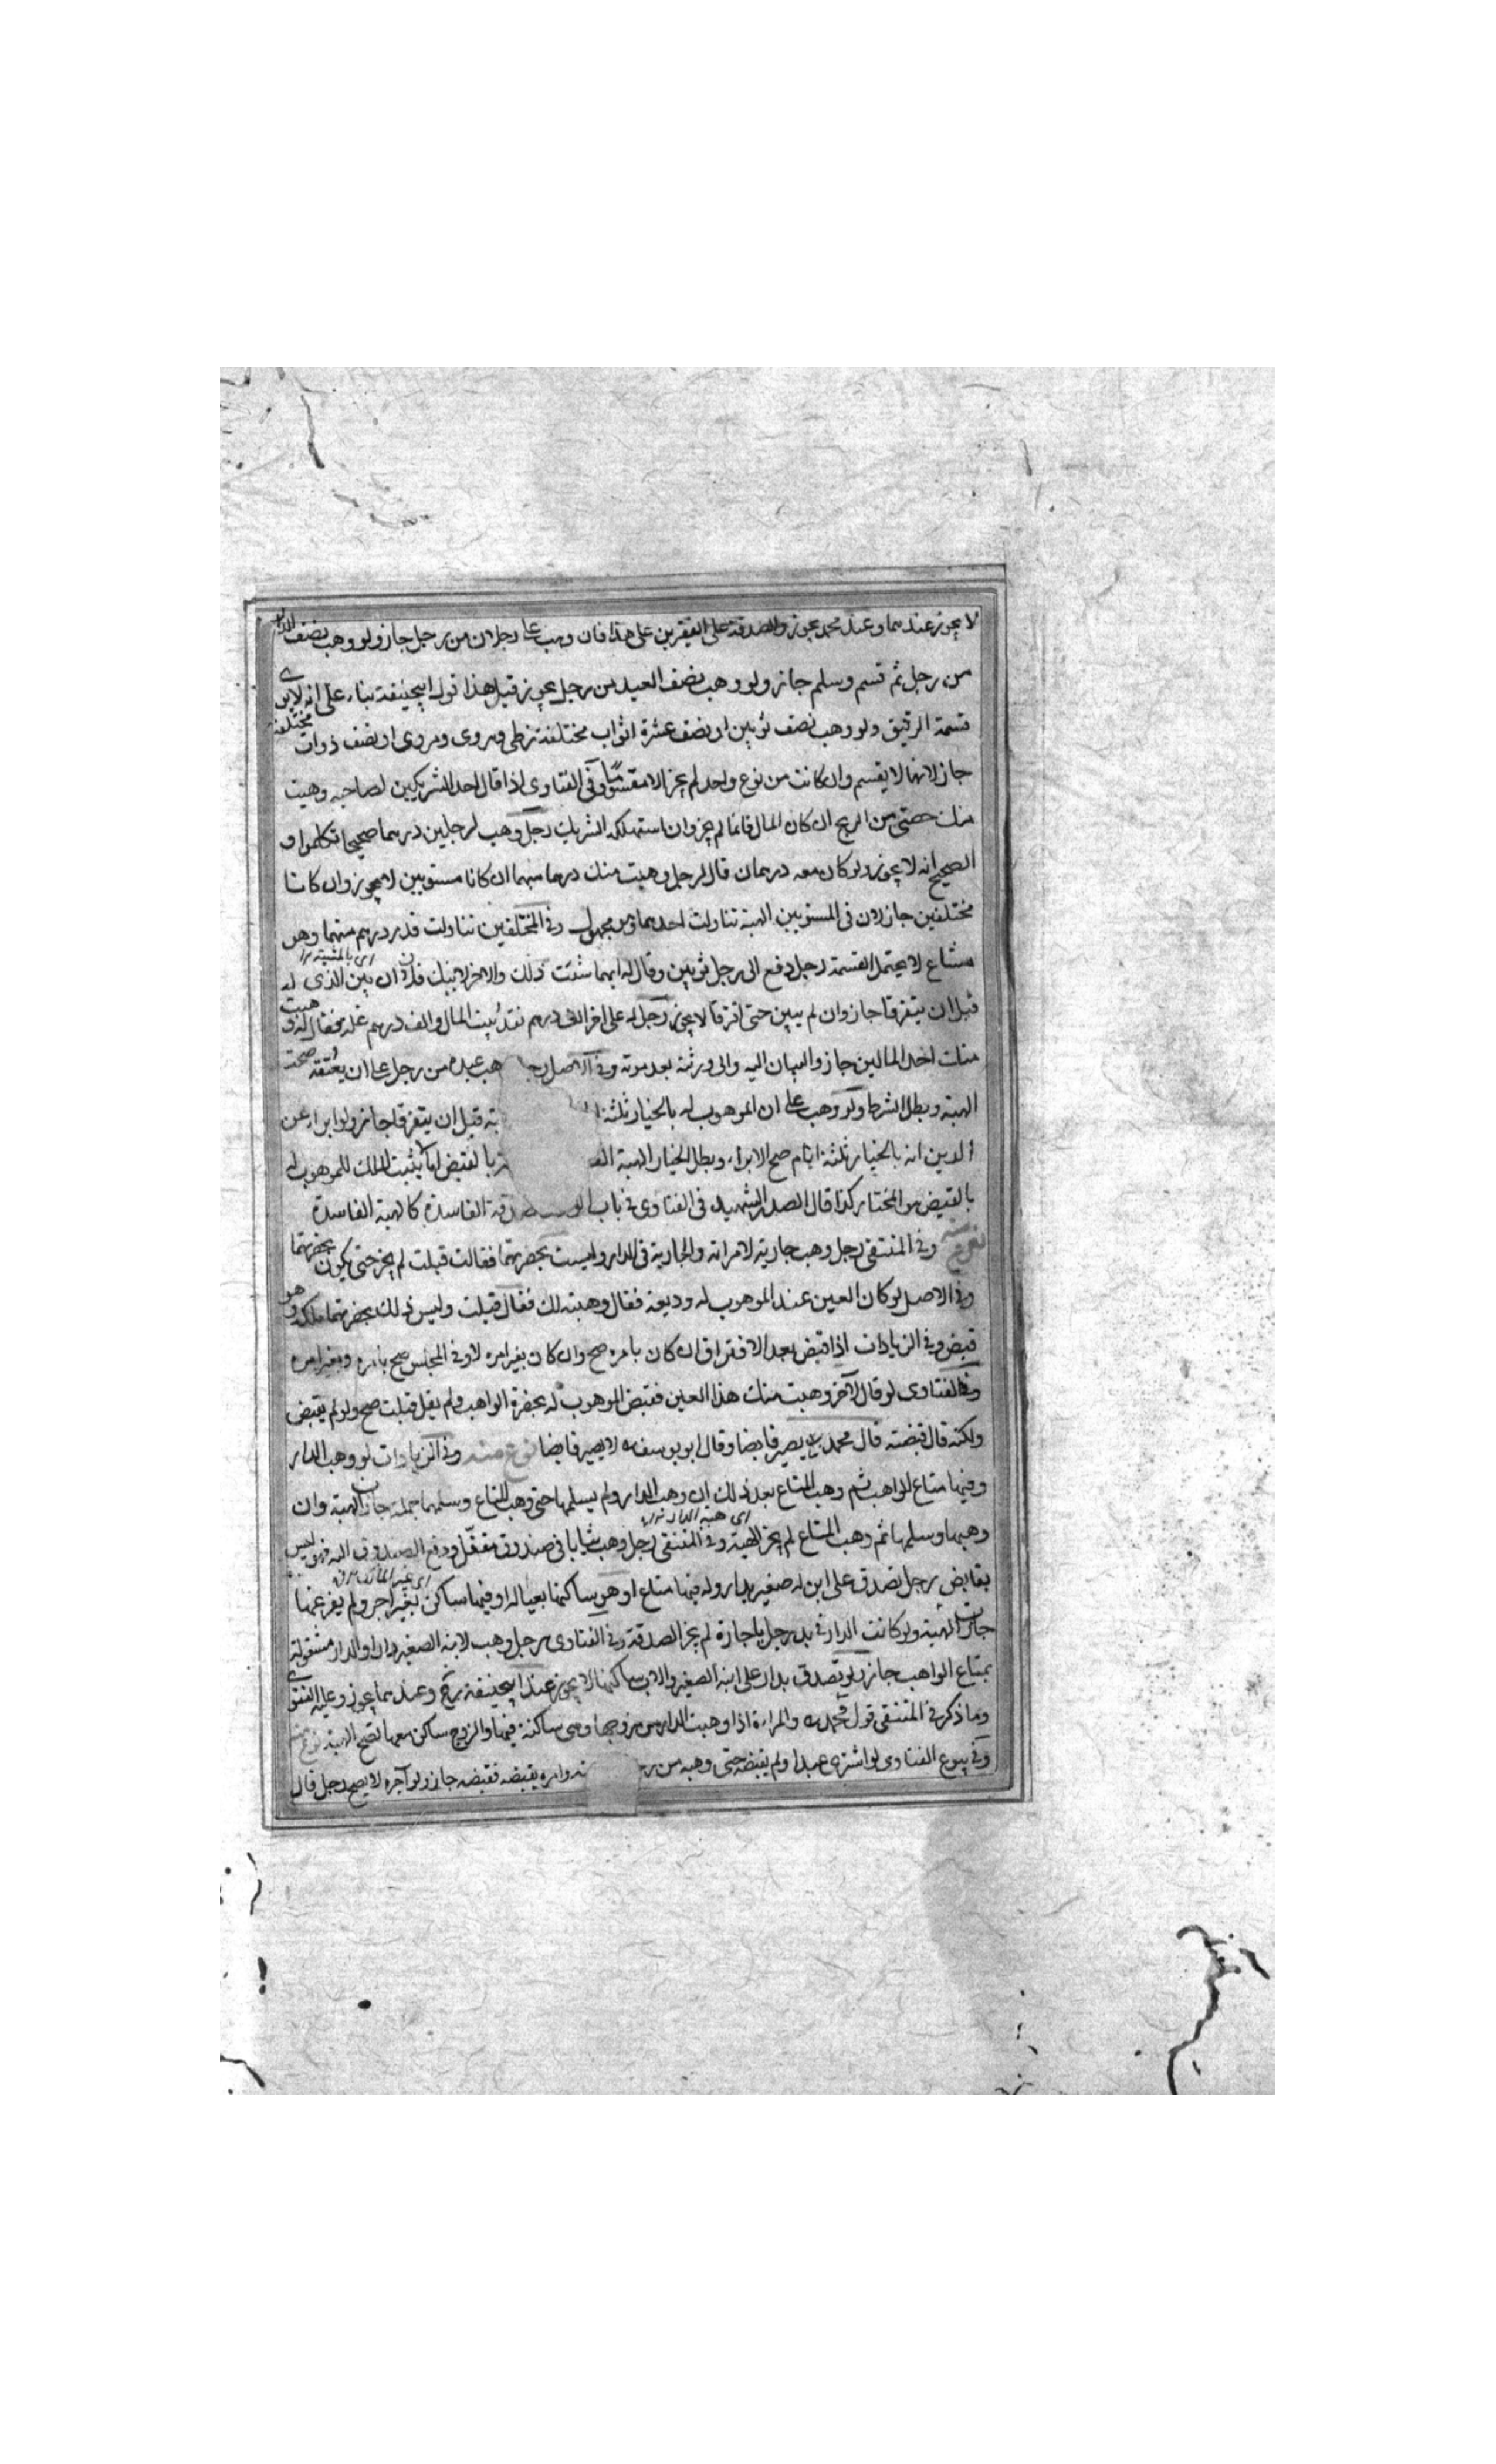 لا يجوز عندهما وعند محمد يجوز والصدقة على الفقيرين على هذا فان وهب رجلان من رجل جاز ولو وهب نصف الدار
من رجل ثم قسم وسلم جاز ولو وهب نصف العبد من رجل يجوز قيل هذا قول ابيحنيفة بناء على انه لا يرى
قسمة الرقيق ولو وهب نصف ثوبين او نصف عشرة اثواب مختلفة زطى وهروى ومروى او نصف دواب مختلفة
جاز لانها لا يقسم وان كانت من نوع واحد لم يجز الا مقسوما وفى الفتاوى اذا قال احد الشريكين لصاحبه وهبت
منك حصتى من الربح ان كان المال قائما لم يجز وان استهلكه الشريك رجل وهب لرجلين درهما صحيحا تكلموا و
الصحيح انه لا يجوز ولو كان معه درهمان قال لرجل وهبت منك درهما منهما ان كانا مستويين لا يجوز وان كانا
مختلفين جاز لان فى المستويين الهبة تناولت احدهما وهو مجهول وفى المختلفين تناولت قدر درهم منهما وهو
مشاع لا يحتمل القسمة رجل دفع الى رجل ثوبين وقال له ايهما شئت فلك والاخر لابنك فلان ان بين الذى له
قبل ان يتفرقا جاز وان لم يبين حتى افترقا لا يجوز رجل له على اخر الف درهم نقد بيت المال والف درهم غلة فقال له وهبت
منك احد المالين جاز والبيان اليه والى ورثته بعد موته وفى الاصل هب عبده من رجل على ان يعتقه صحت
الهبة وبطل الشرط ولو وهب على ان الموهوب له بالخيار ثلثة قبل ان يتفرقا جاز ولو ابراء عن
الدين انه بالخيار ثلثة ايام صح الابراء وبطل الخيار الهبة بالقبض يثبت الملك للموهوب له
بالقبض هو المختار كذا قال الصدر الشهيد فى الفتاوى فى باب الفاسدة كالهبة الفاسدة
وفى المنتقى رجل وهب جارية لامراته والجارية فى الدار وليست بحضرتهما فقالت قبلت لم يجز حتى يكون بحضرتهما
وفى الاصل لو كان العين عند الموهوب له وديعة فقال وهبته لك فقال قبلت وليس ذلك بحضرتهما ملكه وهو
قبض وفى الزيادات اذا قبض بعد الافتراق ان كان بامره صح وان كان بغير امره لا وفى المجلس صح بامره وبغير امره
وفى الفتاوى لو قال لآخر وهبت منك هذا العين فقبض الموهوب له بحضرة الواهب ولم يقل قبلت صح ولو لم يقبض
ولكنه قال قبضته قال محمد يصير قابضا وقال ابو يوسف لا يصير قابضا نوع منه وفى الزيادات لو وهب الدار
وفيها متاع للواهب ثم وهب المتاع بعد ذلك ان وهب الدار ولم يسلمها حتى وهب المتاع وسلمها جملة جازت الهبة وان
وهبها وسلمها ثم وهب المتاع لم يجز الهبة وفى المنتقى رجل وهب ثيابا فى صندوق مقفل ودفع الصندوق اليه فهو ليس
بقابض رجل تصدق على ابن له صغير بدار وله فيها متاع او هو ساكنها بعياله او فيها ساكن بغير اجر ولم يفرغها
جازت الهبة ولو كانت الدار فى يد رجل باجازة لم يجز الصدقة وفى الفتاوى رجل وهب لابنه الصغير دارا والدار مشغولة
بمتاع الواهب جاز ولو تصدق بدار على ابنه الصغير والاب ساكنها لا يجوز عند ابيحنيفة وعندهما يجوز وعليه الفتوى
وما ذكر فى المنتقى قول محمد والمراءة اذا وهبت الدار من زوجها وهى ساكنة فيها والزوج ساكن معها تصح الهبة نوع منه
وفى بيوع الفتاوى لو اشترى عبدا ولم يقبضه حتى وهبه من وامره بقبضه فقبضه جاز ولو آجره لا يصح رجل قال